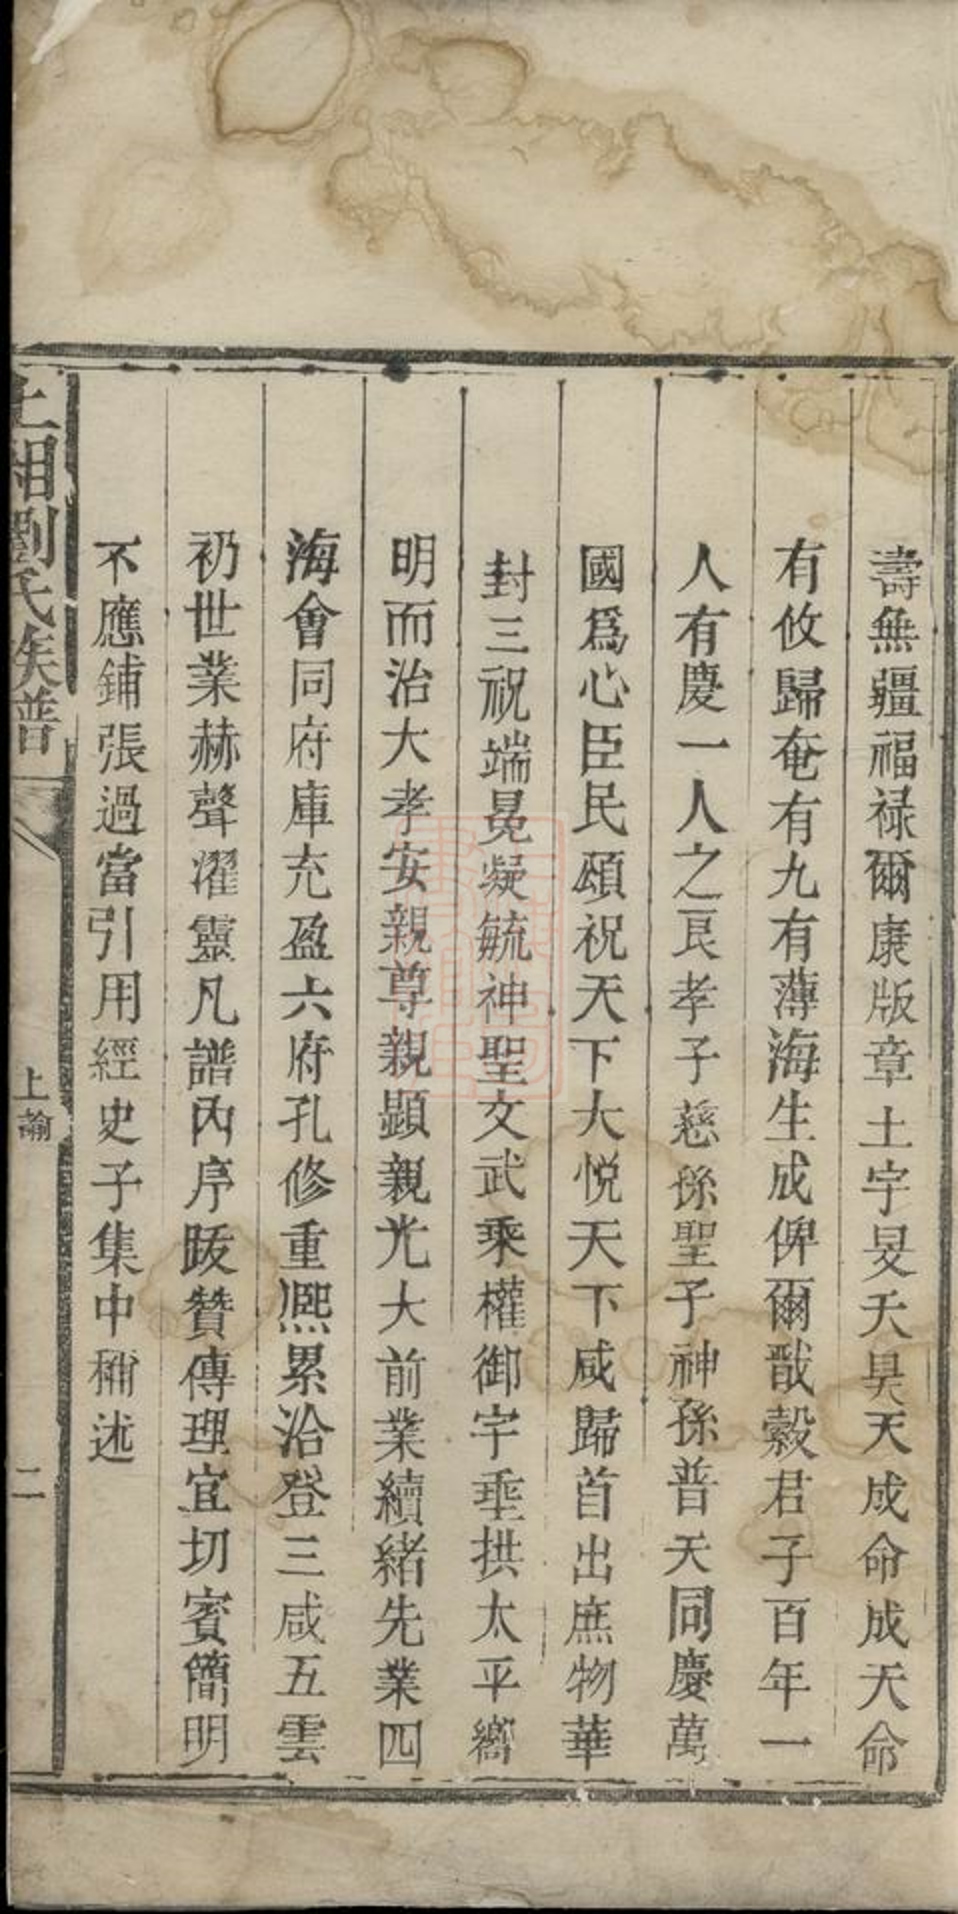 壽無疆福禄爾康版章土宇旻天昊天成命成天命
有攸歸奄有九有薄海生成俾爾戩穀君子百年一
人有慶一人之良孝子慈孫聖子神孫普天同慶萬
國爲心臣民頌祝天下大悅天下咸歸首出庶物華
封三祝端冕凝毓神聖文武乘權御宇垂拱太平嚮
明而治大孝安親尊親顯親光大前業續緒先業四
海會同府庫充盈六府孔修重熙累洽登三咸五雲
礽世業赫聲濯靈凡譜內序跋贊傳理宜切實簡明
不應鋪張過當引用經史子集中稱述
上湘劉氏族譜
上諭
二